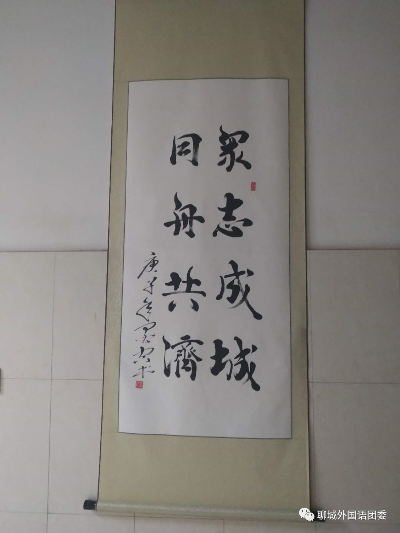 眾志成城
同舟共濟
庚子
聊城外国语团委